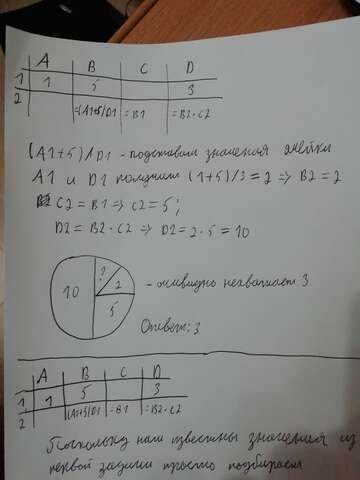 A B C D
1 1 5 3
2 =(A1+5)/D1 =B1 =B2·C2
(A1+5)/D1 - подставим значения ячейки
A1 и D1 получим (1+5)/3=2 => B2=2
C2=B1 => C2=5;
D2=B2·C2 => D2=2·5=10
10 ? 2 5 - очевидно нехватает 3
Ответ: 3
A B C D
1 1 5 3
2 (A1+5)/D1 =B1 =B2·C2
Поскольку нам известны значения из
первой задачи просто подбираем